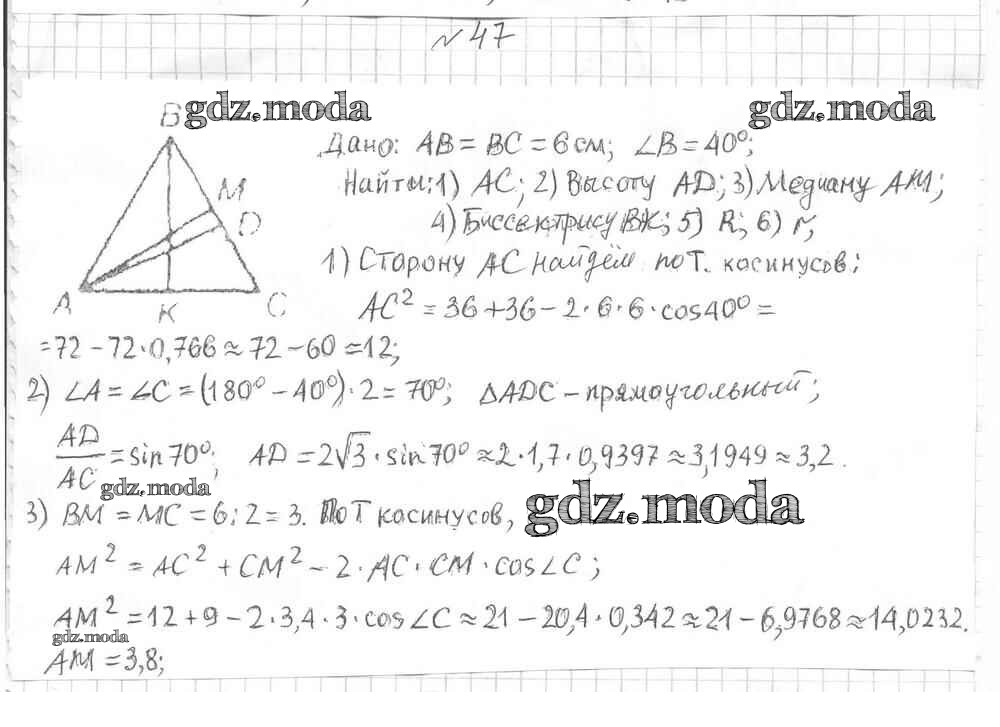 № 47
gdz.moda
gdz.moda
B
M
D
A
K
C
Дано: AB = BC = 6 см; ∠B = 40°;
Найти: 1) AC; 2) Высоту AD; 3) Медиану AM;
4) Биссектрису BK; 5) R; 6) r,
1) Сторону AC найдём по т. касинусов:
AC² = 36 + 36 – 2 · 6 · 6 · cos40° =
= 72 – 72 · 0,766 ≈ 72 – 60 = 12;
2) ∠A = ∠C = (180° – 40°) · 2 = 70°; △ADC – прямоугольный;
AD/AC = sin70°; AD = 2√3 · sin70° ≈ 2 · 1,7 · 0,9397 ≈ 3,1949 ≈ 3,2.
gdz.moda
3) BM = MC = 6 : 2 = 3. По т касинусов,
gdz.moda
AM² = AC² + CM² – 2 · AC · CM · cos∠C;
AM² = 12 + 9 – 2 · 3,4 · 3 · cos∠C ≈ 21 – 20,4 · 0,342 ≈ 21 – 6,9768 ≈ 14,0232.
gdz.moda
AM = 3,8;